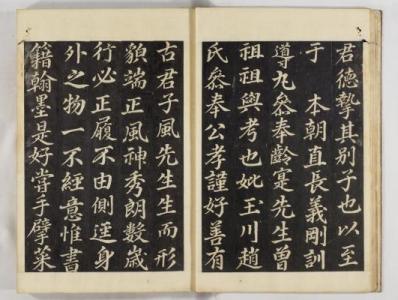 君德摯其別子也以至
于　本朝直長義剛訓
導九叅奉齡寔先生曾
祖祖與考也妣玉川趙
氏叅奉公孝謹好善有
古君子風先生生而形
貌端正風神秀朗數歲
行必正履不由側逕身
外之物一不經意惟書
籍翰墨是好嘗手擘菜